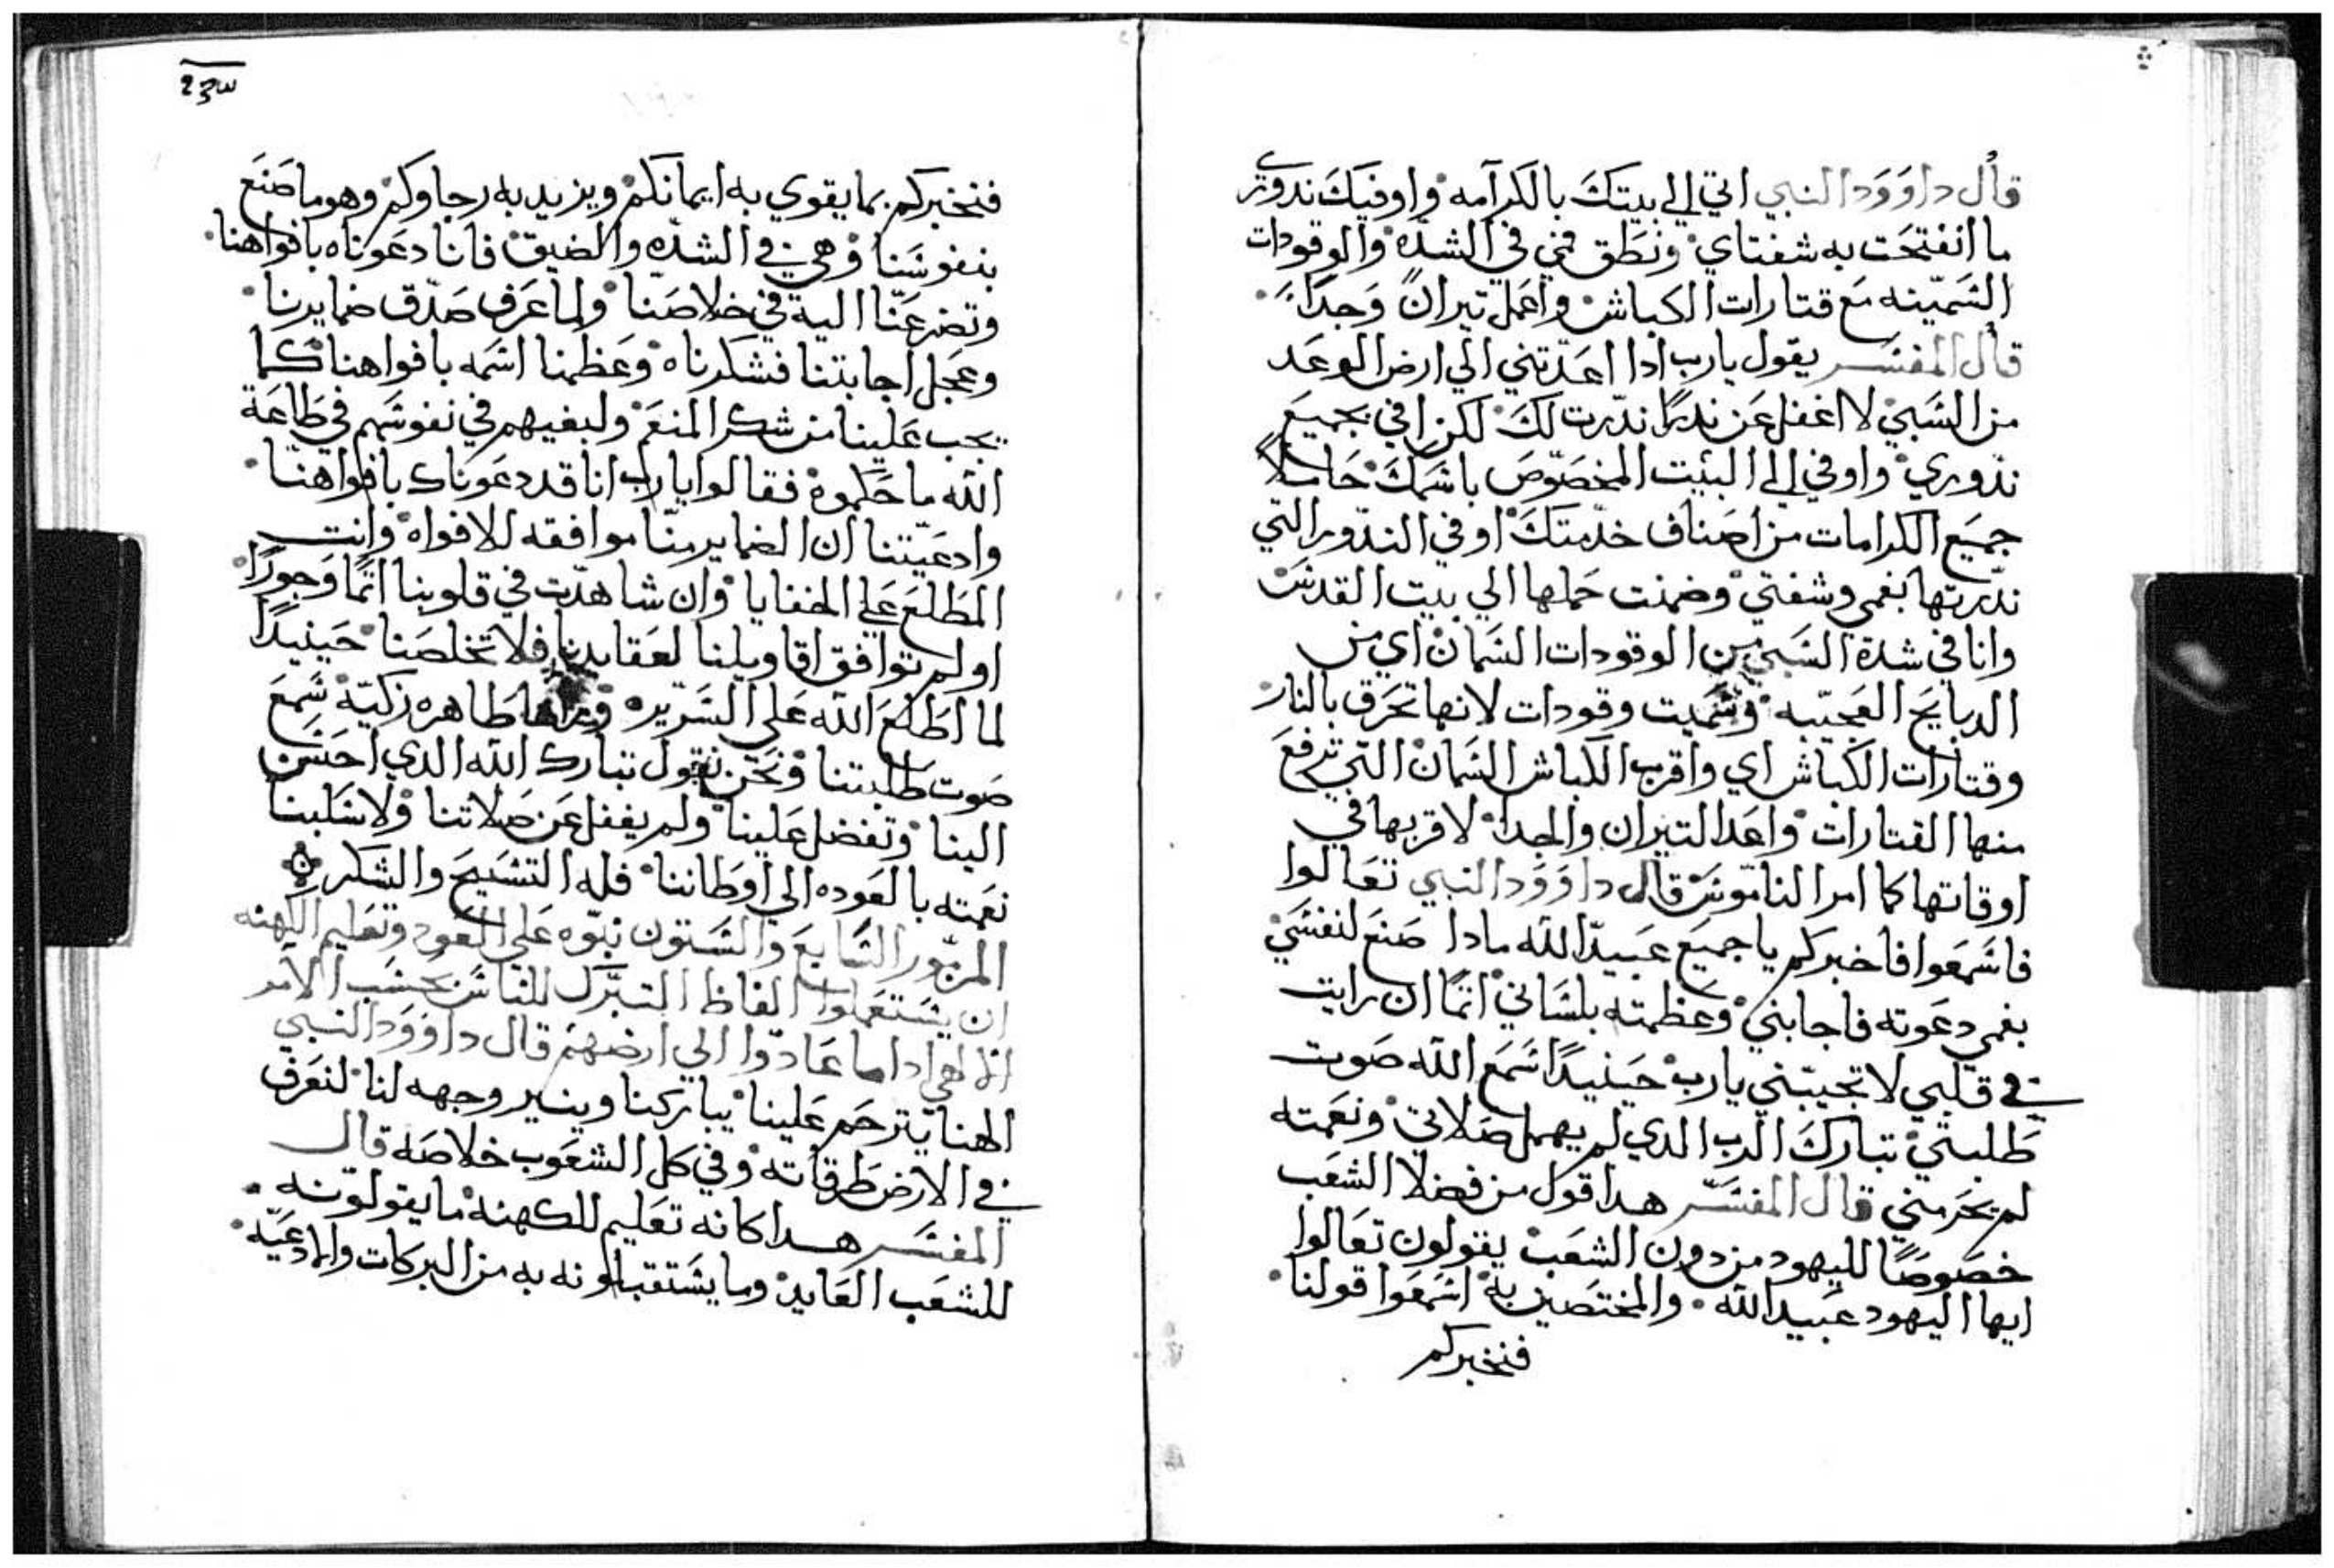 قال داوود النبي اتي الي بيتك بالكرآمه واوفيك ندوري
ما انفتحت به شفتاي ونطق فمي في الشده والوقودات
السمينه مع قتارات الكباش واعمل تيران وجدا
قال المفسر يقول يارب ادا اعدتني الي ارض الوعد
من السبي لا اغفل عن ندرا ندرت لك لكن افي بجميع
ندوري واوفي الي البيت المخصوص باسمك حاملا
جميع الكرامات من اصناف خدمتك اوفي الندور التي
ندرتها بفمي وشفتي وضمنت حملها الي بيت القدس
وانا في شدة السبي من الوقودات السمان اي من
الدبايح العجيبه وسميت وقودات لانها تحرق بالنار
وقتارات الكباش اي واقرب الكباش السمان التي ترفع
منها القتارات واعد التيران والجدا لاقربها في
اوقاتها كما امر الناموس قال داوود النبي تعالوا
فاسمعوا فاخبركم يا جميع عبيد الله مادا صنع لنفسي
بفمي دعوته فاجابني وعظمته بلساني اتما ان رايت
في قلبي لا تجيبني يارب حينيدا سمع الله صوت
طلبتي تبارك الرب الدي لم يهمل صلاتي ونعمته
لم يحرمني قال المفسر هدا قول من فضلا الشعب
خصوصا لليهود من دون الشعب يقولون تعالوا
ايها اليهود عبيد الله والمختصين به اسمعوا قولنا
فنخبركم
فنخبركم بما يقوي به ايمانكم ويزيد به رجاوكم وهو ما صنع
بنفوسنا وهي في الشده والضيق فانا دعوناه بافواهنا
وتضرعنا اليه في خلاصنا ولما عرف صدق ضمايرنا
وعجل اجابتنا فشكرناه وعظمنا اسمه بافواهنا كما
يجب علينا من شكر المنعم ولبفيهم في نفوسهم في طاعة
الله ما حكموه فقالوا يارب انا قد دعوناك بافواهنا
وادعيتنا ان الضماير منا موافقه للافواه وانت
المطلع علي الخفايا وان شاهدت في قلوبنا اتما وجورا
او لم توافق اقاويلنا لعقايدنا فلا تخلصنا حينيدا
لما اطلع الله علي السرير طاهره زكيه سمع
صوت طلبتنا ونحن نقول تبارك الله الدي احسن
الينا وتفضل علينا ولم يغفل عن صلاتنا ولا سلبنا
نعمته بالعوده الي اوطاننا فله التسبيح والشكر
المزمور السابع والستون نبوه علي العود وتعليم الكهنه
ان يستعملوا الفاظ التبرك للناس بحسب الامر
الالهي ادا ما عادوا الي ارضهم قال داوود النبي
الهنا يترحم علينا يباركنا وينير وجهه لنا لنعرف
في الارض طرقاته وفي كل الشعوب خلاصه قال
المفسر هدا كانه تعليم للكهنه ما يقولونه
للشعب العايد وما يستقبلونه به من البركات والادعيه